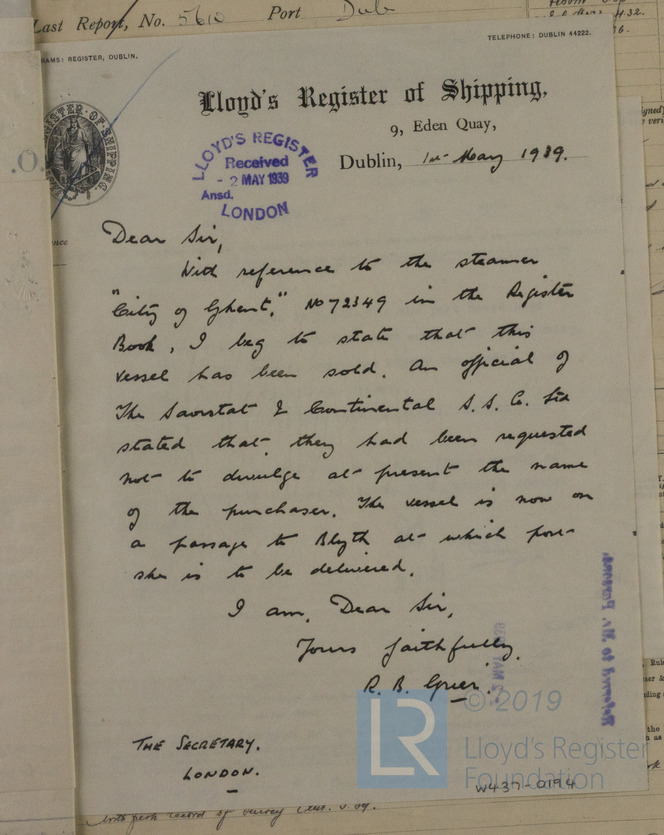 Last Report, No. 5610 Port Dub
TELEPHONE: DUBLIN 44222.
RAMS: REGISTER, DUBLIN.
Lloyd's Register of Shipping,
9, Eden Quay,
Dublin, 1st May 1939.
LLOYD'S REGISTER
Received
- 2 MAY 1939
Ansd.
LONDON
Dear Sir,
With reference to the steamer
"City of Ghent," No 72349 in the Register
Book, I beg to state that this
vessel has been sold. An official of
The Saorstat & Continental S.S. Co. Ltd
stated that they had been requested
not to divulge at present the name
of the purchaser. The vessel is now on
a passage to Blyth at which port
she is to be delivered.
I am, Dear Sir,
Yours faithfully,
R. B. Grier.
THE SECRETARY.
LONDON.
LR
© 2019
Lloyd's Register
Foundation
W437-0194